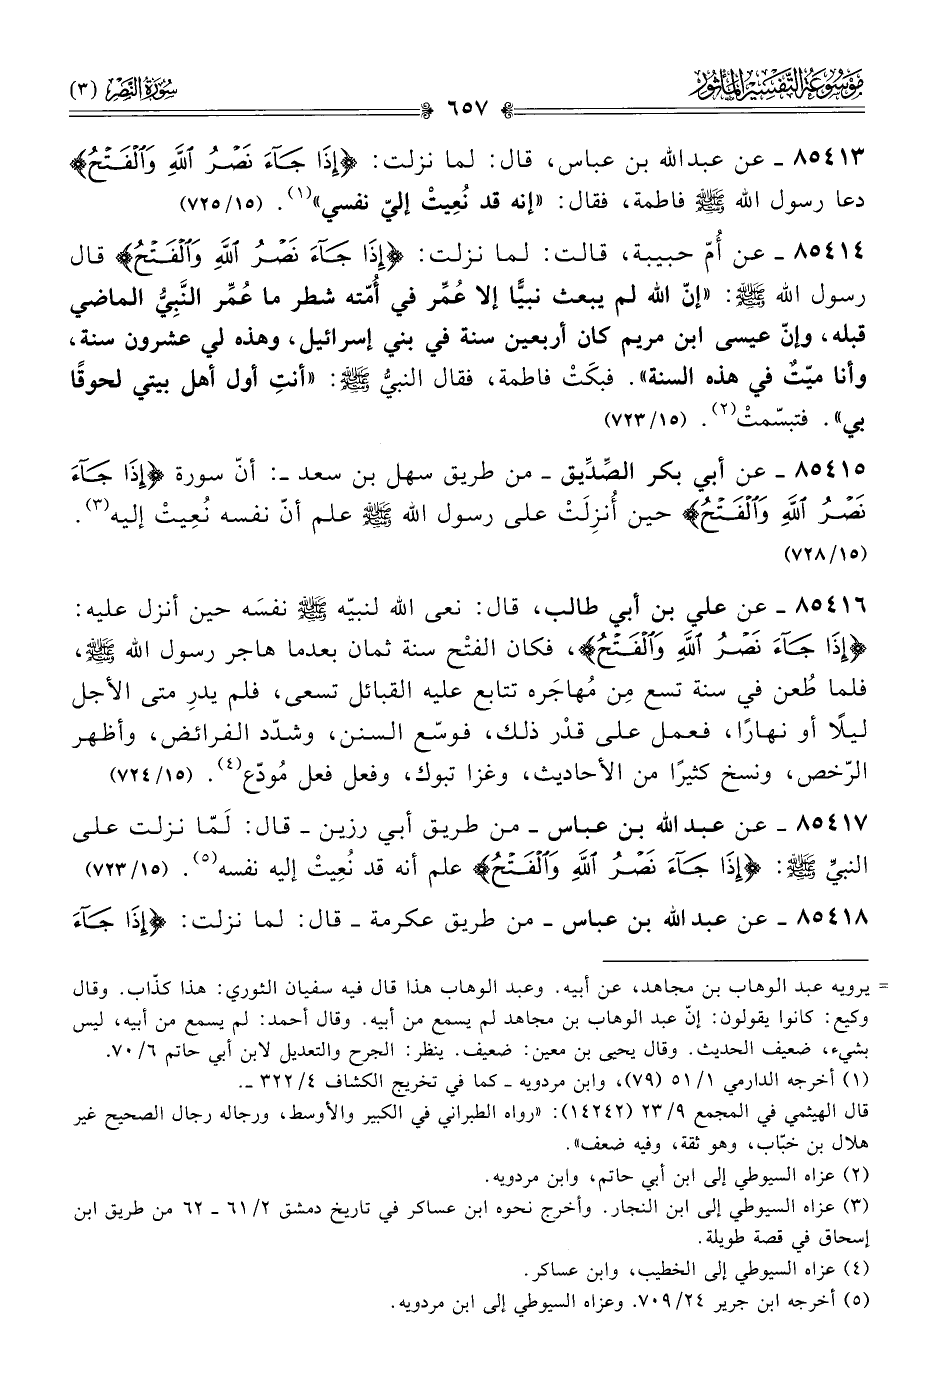 موسوعة التفسير المأثور
سورة النصر (٣)
٦٥٧
٨٥٤١٣ ـ عن عبدالله بن عباس، قال: لما نزلت: ﴿إِذَا جَآءَ نَصْرُ ٱللَّهِ وَٱلْفَتْحُ﴾
دعا رسول الله ﷺ فاطمة، فقال: «إنه قد نُعِيتْ إليّ نفسي»(١). (٧٢٥/١٥)
٨٥٤١٤ ـ عن أُمّ حبيبة، قالت: لما نزلت: ﴿إِذَا جَآءَ نَصْرُ ٱللَّهِ وَٱلْفَتْحُ﴾ قال
رسول الله ﷺ: «إنّ الله لم يبعث نبيًّا إلا عُمِّر في أُمّته شطر ما عُمِّر النَّبِيُّ الماضي
قبله، وإنّ عيسى ابن مريم كان أربعين سنة في بني إسرائيل، وهذه لي عشرون سنة،
وأنا ميّتٌ في هذه السنة». فبكَتْ فاطمة، فقال النبيُّ ﷺ: «أنتِ أول أهل بيتي لحوقًا
بي». فتبسّمتْ(٢). (٧٢٣/١٥)
٨٥٤١٥ ـ عن أبي بكر الصِّدِّيق ـ من طريق سهل بن سعد ـ: أنّ سورة ﴿إِذَا جَآءَ
نَصْرُ ٱللَّهِ وَٱلْفَتْحُ﴾ حين أُنزِلَتْ على رسول الله ﷺ علم أنّ نفسه نُعِيتْ إليه(٣).
(٧٢٨/١٥)
٨٥٤١٦ ـ عن علي بن أبي طالب، قال: نعى الله لنبيّه ﷺ نفسَه حين أنزل عليه:
﴿إِذَا جَآءَ نَصْرُ ٱللَّهِ وَٱلْفَتْحُ﴾، فكان الفتْح سنة ثمان بعدما هاجر رسول الله ﷺ،
فلما طُعن في سنة تسع مِن مُهاجَره تتابع عليه القبائل تسعى، فلم يدرِ متى الأجل
ليلًا أو نهارًا، فعمل على قدْر ذلك، فوسّع السنن، وشدّد الفرائض، وأظهر
الرّخص، ونسخ كثيرًا من الأحاديث، وغزا تبوك، وفعل فعل مُودّع(٤). (٧٢٤/١٥)
٨٥٤١٧ ـ عن عبدالله بن عباس ـ من طريق أبي رزين ـ قال: لَمّا نزلت على
النبيِّ ﷺ: ﴿إِذَا جَآءَ نَصْرُ ٱللَّهِ وَٱلْفَتْحُ﴾ علم أنه قد نُعِيتْ إليه نفسه(٥). (٧٢٣/١٥)
٨٥٤١٨ ـ عن عبدالله بن عباس ـ من طريق عكرمة ـ قال: لما نزلت: ﴿إِذَا جَآءَ
= يرويه عبد الوهاب بن مجاهد، عن أبيه. وعبد الوهاب هذا قال فيه سفيان الثوري: هذا كذّاب. وقال
وكيع: كانوا يقولون: إنّ عبد الوهاب بن مجاهد لم يسمع من أبيه. وقال أحمد: لم يسمع من أبيه، ليس
بشيء، ضعيف الحديث. وقال يحيى بن معين: ضعيف. ينظر: الجرح والتعديل لابن أبي حاتم ٦/ ٧٠.
(١) أخرجه الدارمي ١/ ٥١ (٧٩)، وابن مردويه ـ كما في تخريج الكشاف ٤/ ٣٢٢ ـ.
قال الهيثمي في المجمع ٩/ ٢٣ (١٤٢٤٢): «رواه الطبراني في الكبير والأوسط، ورجاله رجال الصحيح غير
هلال بن خبّاب، وهو ثقة، وفيه ضعف».
(٢) عزاه السيوطي إلى ابن أبي حاتم، وابن مردويه.
(٣) عزاه السيوطي إلى ابن النجار. وأخرج نحوه ابن عساكر في تاريخ دمشق ٢/ ٦١ ـ ٦٢ من طريق ابن
إسحاق في قصة طويلة.
(٤) عزاه السيوطي إلى الخطيب، وابن عساكر.
(٥) أخرجه ابن جرير ٢٤/ ٧٠٩. وعزاه السيوطي إلى ابن مردويه.